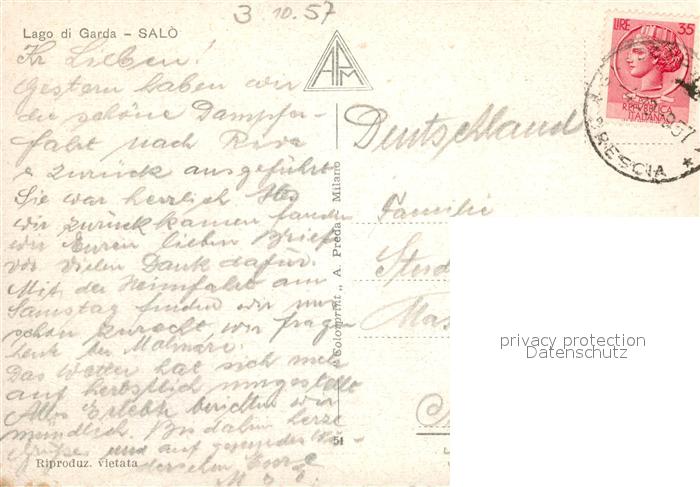 3.10.57
Lago di Garda - SALÒ
LIRE 35
REPUBBLICA
ITALIANA
BRESCIA
APM
Ihr Lieben!
Gestern haben wir
die schöne Dampfer-
fahrt nach Riva
& zurück ausgeführt
Sie war herrlich Als
wir zurück kamen fanden
wir Euren lieben Brief
vor Vielen Dank dafür.
Mit der Heimfahrt am
Samstag finden wir uns
schon zurecht wir fragen
heute bei
Das Wetter hat sich mehr
auf herbstlich umgestellt
Alles Erlebte berichten wir
mündlich. Bis dahin herzl
Grüsse und auf gesundes Wie-
dersehen Eure
Deutschland
Familie
„Colorprint„ A. Preda - Milano
51
Riproduz. vietata
privacy protection
Datenschutz